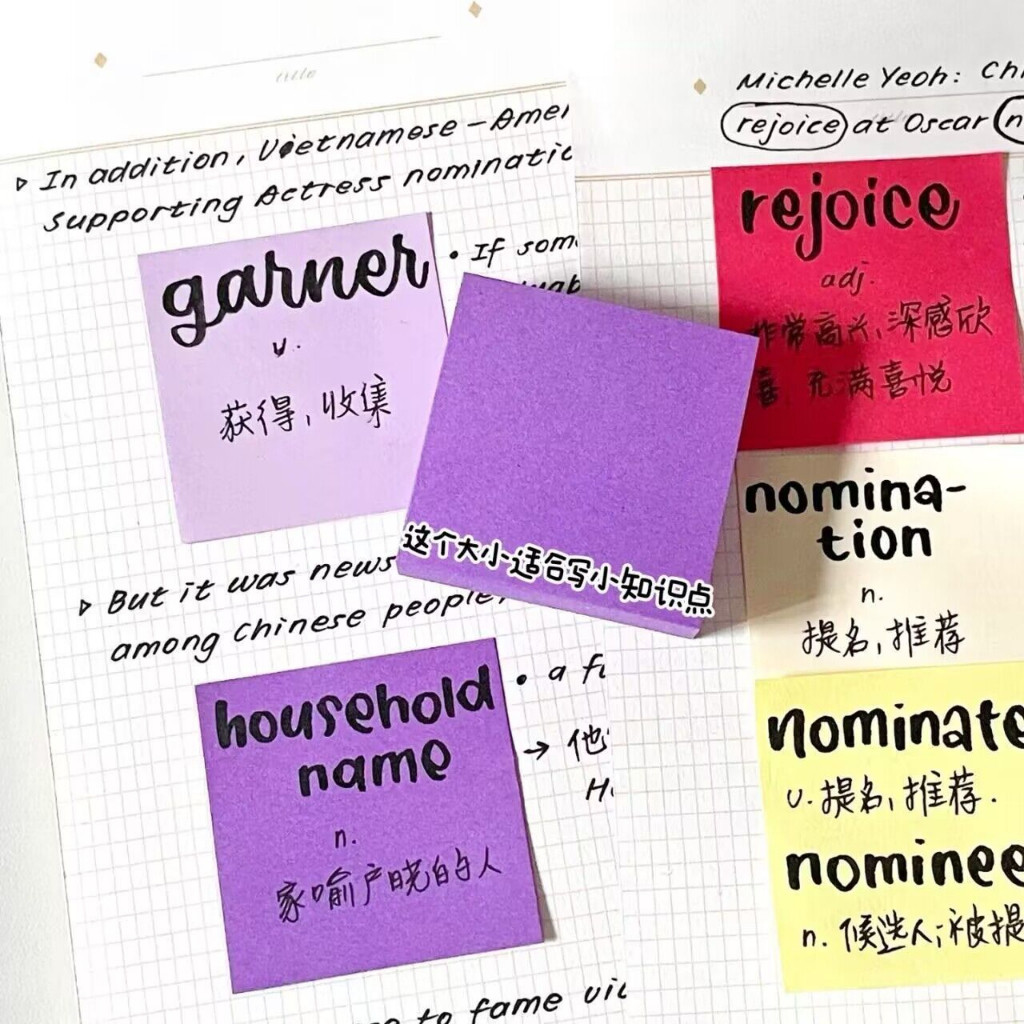 title
▷ In addition, Vietnamese-Amer
Supporting Actress nominatio
garner
v.
获得,收集
• If som
这个大小适合写小知识点
▷ But it was news
among Chinese people,
household
name
n.
家喻户晓的人
• a fi
→ 他
H
to fame vi
Michelle Yeoh: Chi
rejoice at Oscar n
rejoice
adj.
非常高兴,深感欣
喜,充满喜悦
nomina-
tion
n.
提名,推荐
nominate
v. 提名,推荐.
nominee
n. 候选人;被提